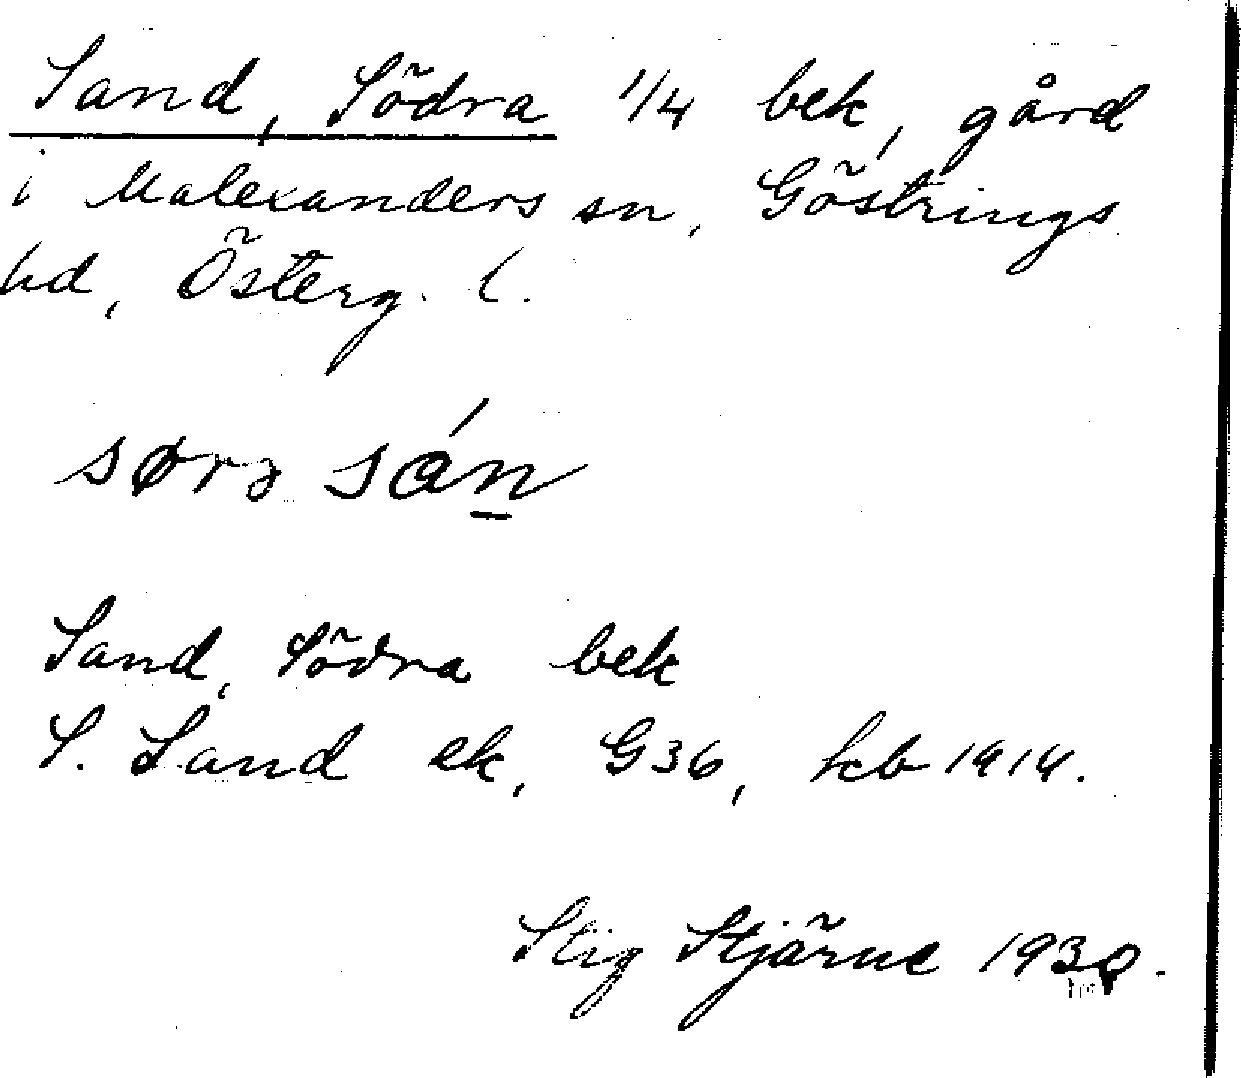 Sand, Södra 1/4 bek, gård
i Malexanders sn, Göstrings
hd, Österg. l.
sørɜ sán
Sand, Södra bek
S. Sand ek, G36, hcb 1914.
Stig Stjärne 1930.